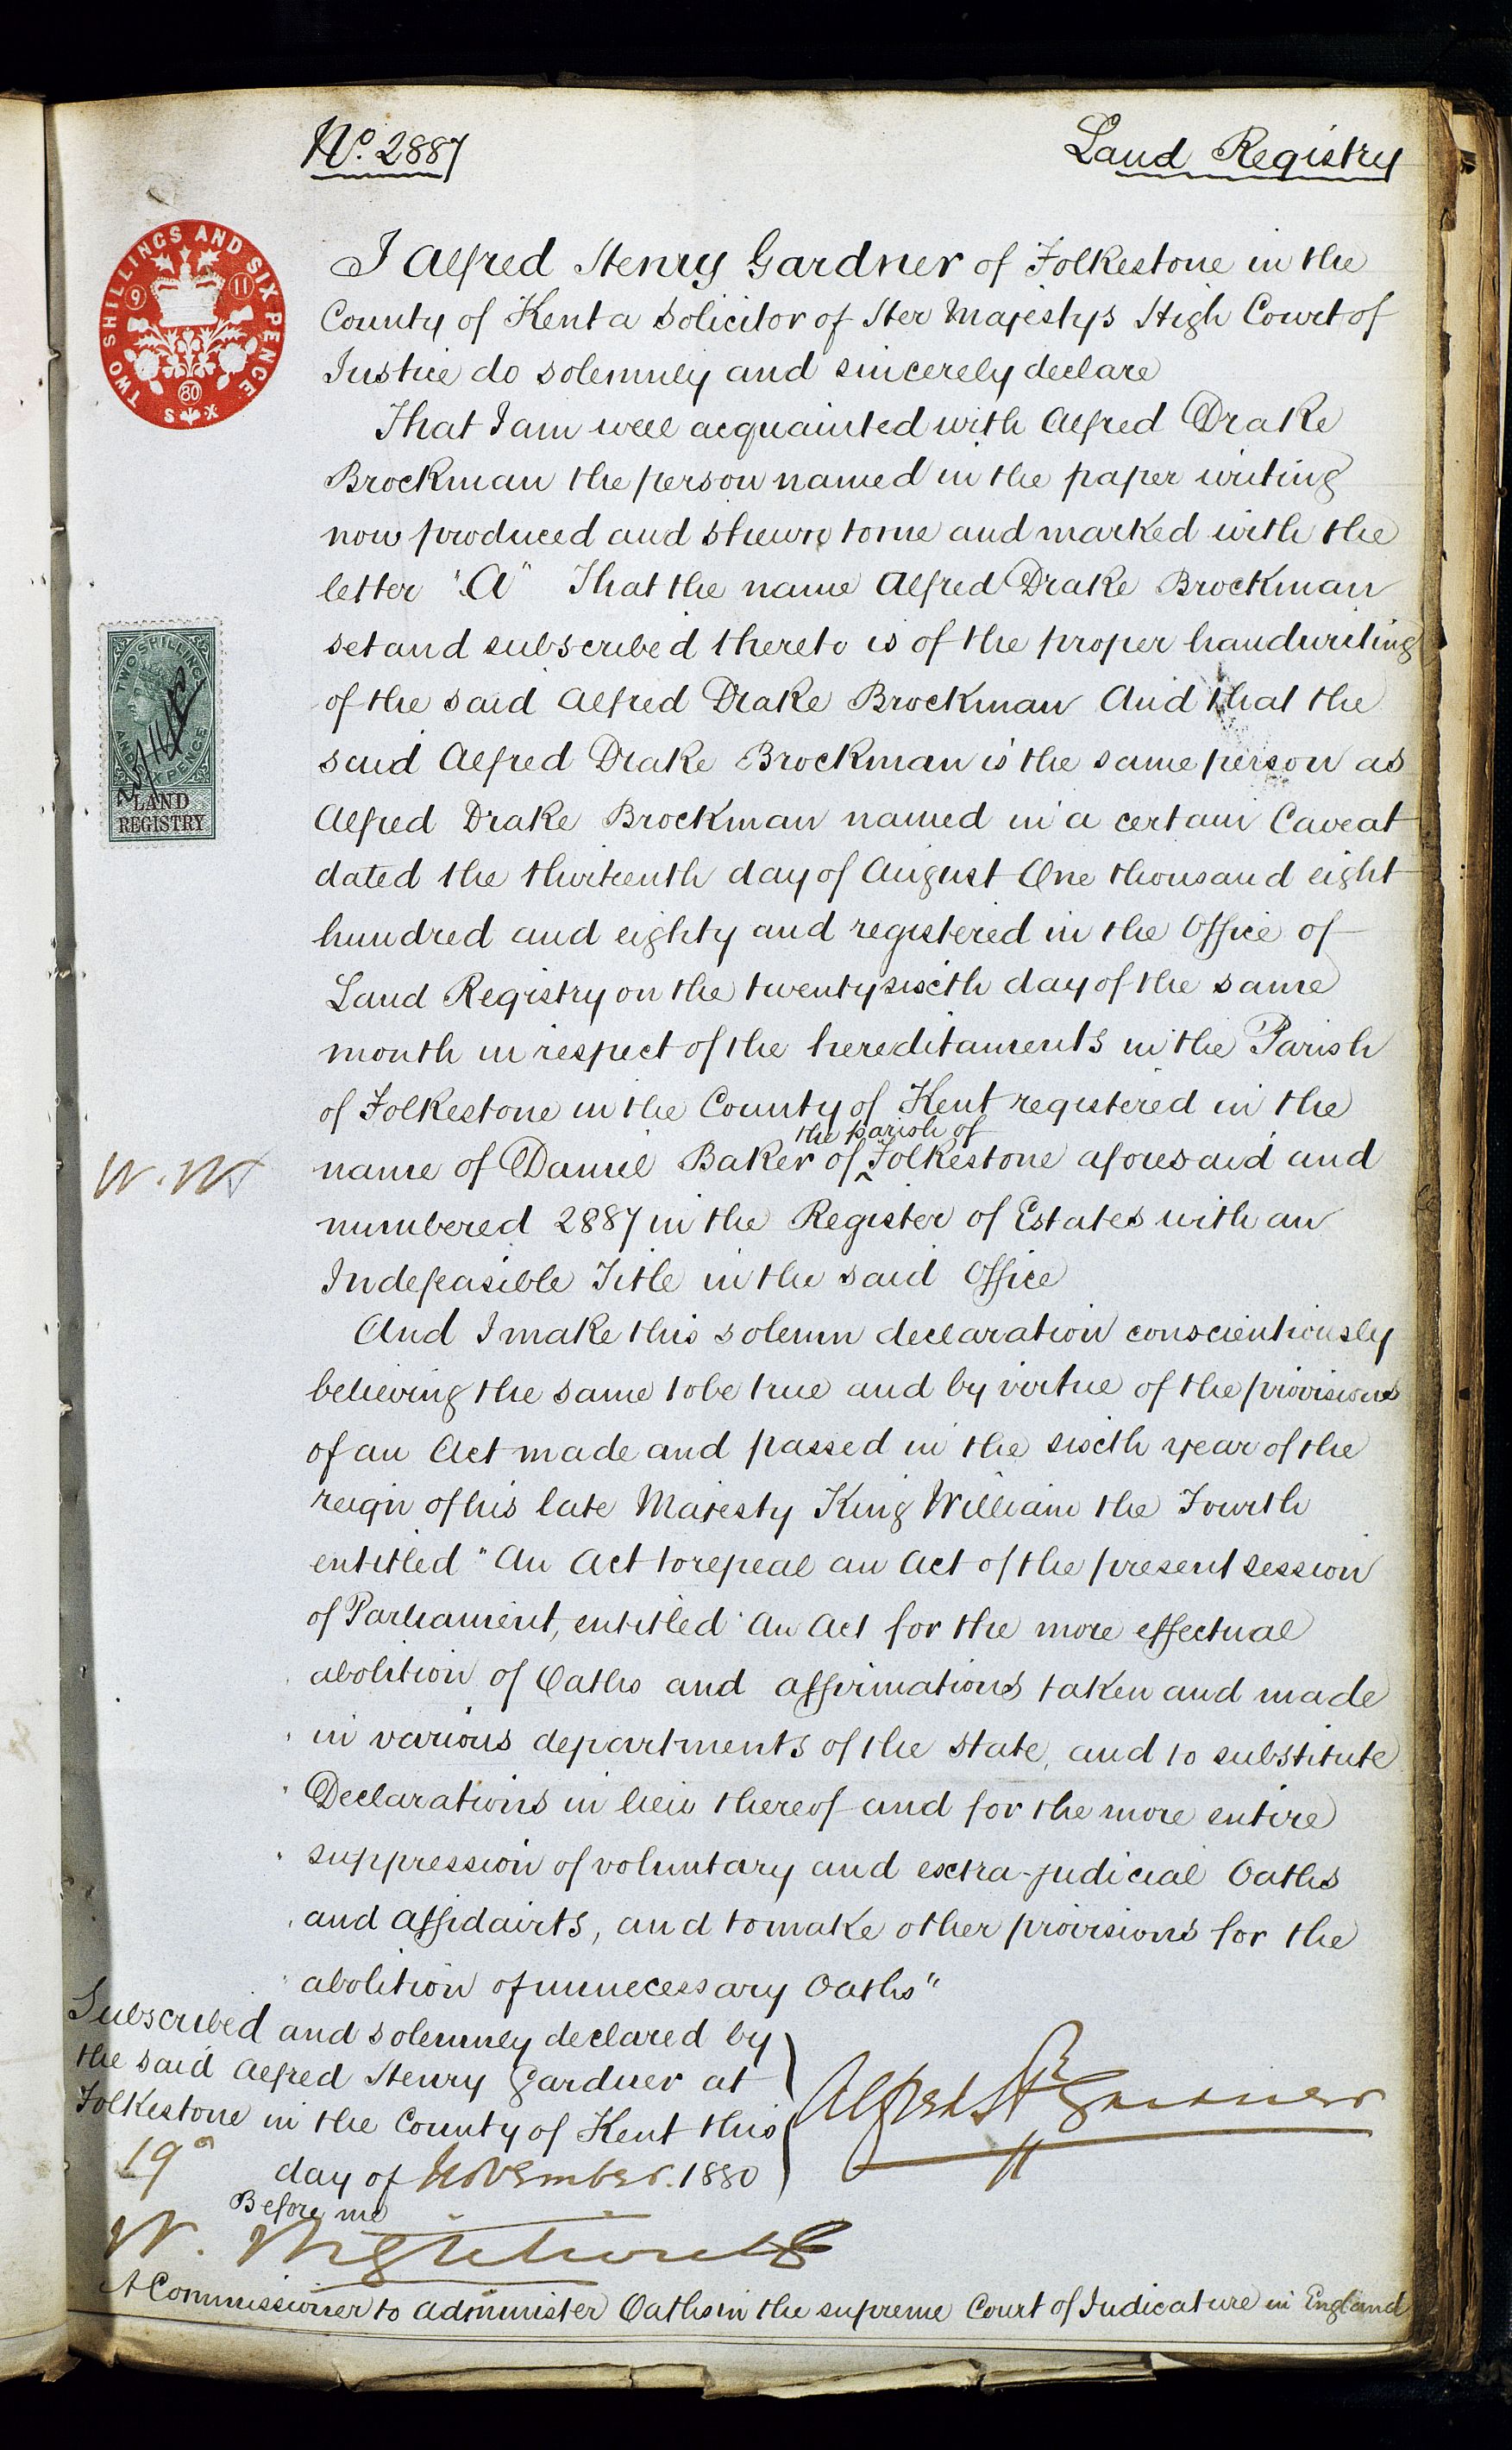 No. 2887
Land Registry
TWO SHILLINGS AND SIX PENCE
9 11
80
S X
I Alfred Henry Gardner of Folkestone in the
County of Kent a Solicitor of Her Majestys High Court of
Justice do solemnly and sincerely declare
That I am well acquainted with Alfred Drake
Brockman the person named in the paper writing
now produced and shewn to me and marked with the
letter "A" That the name Alfred Drake Brockman
set and subscribed thereto is of the proper handwriting
of the said Alfred Drake Brockman And that the
said Alfred Drake Brockman is the same person as
Alfred Drake Brockman named in a certain Caveat
dated the thirteenth day of August One thousand eight
hundred and eighty and registered in the Office of
Land Registry on the twenty sixth day of the same
month in respect of the hereditaments in the Parish
of Folkestone in the County of Kent registered in the
the parish of
name of Daniel Baker of ‸ Folkestone aforesaid and
numbered 2887 in the Register of Estates with an
Indefeasible Title in the said Office
And I make this solemn declaration conscientiously
believing the same to be true and by virtue of the provisions
of an Act made and passed in the sixth year of the
reign of his late Majesty King William the Fourth
entitled "An Act to repeal an Act of the present session
of Parliament, entitled 'An Act for the more effectual
abolition of Oaths and affirmations taken and made
in various departments of the state, and to substitute
Declarations in lieu thereof and for the more entire
suppression of voluntary and extra-judicial Oaths
and affidavits, and to make other provisions for the
abolition of unnecessary Oaths"
TWO SHILLINGS
AND SIX PENCE
LAND
REGISTRY
W. W
Subscribed and solemnly declared by
the said Alfred Henry Gardner at
Folkestone in the County of Kent this
19th day of November 1880
Alfred Hy Gardner
Before me
W.
A Commissioner to administer Oaths in the supreme Court of Judicature in England